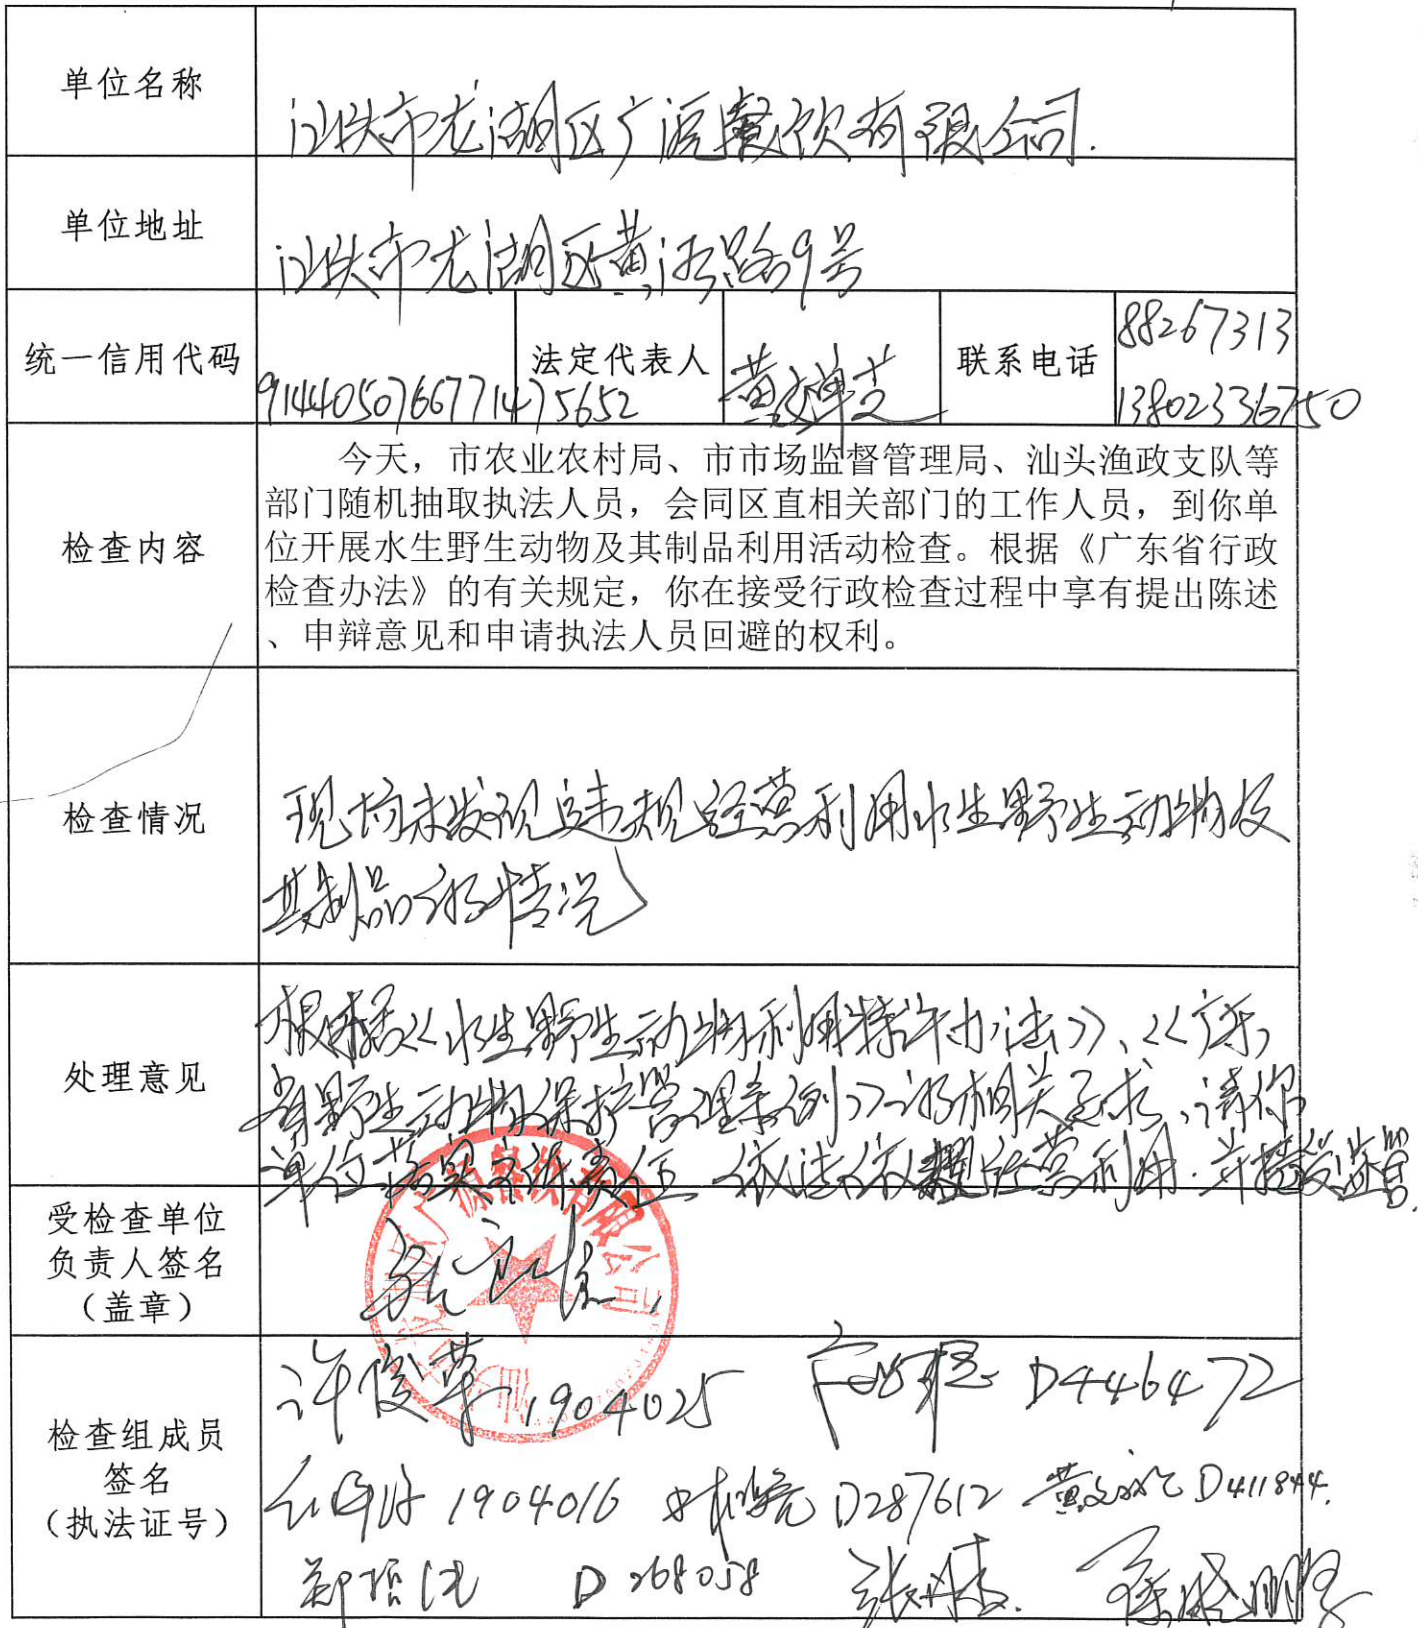 单位名称
汕头市龙湖区广源餐饮有限公司.
单位地址
汕头市龙湖区黄河路9号
统一信用代码
法定代表人
黄
联系电话
88267313
13802336750
检查内容
今天，市农业农村局、市市场监督管理局、汕头渔政支队等
部门随机抽取执法人员，会同区直相关部门的工作人员，到你单
位开展水生野生动物及其制品利用活动检查。根据《广东省行政
检查办法》的有关规定，你在接受行政检查过程中享有提出陈述
、申辩意见和申请执法人员回避的权利。
检查情况
现场未发现违规经营利用水生野生动物及
其制品的情况
处理意见
根据《水生野生动物利用特许办法》、《广东
省野生动物保护管理条例》的相关要求，请你
单位落实主体责任，依法依规经营利用.并接受监管.
受检查单位
负责人签名
（盖章）
广源餐饮有限公司
检查组成员
签名
（执法证号）
许俊 1904025 D446472
1904016 D287612 黄文 D411844.
郑 D268058 张